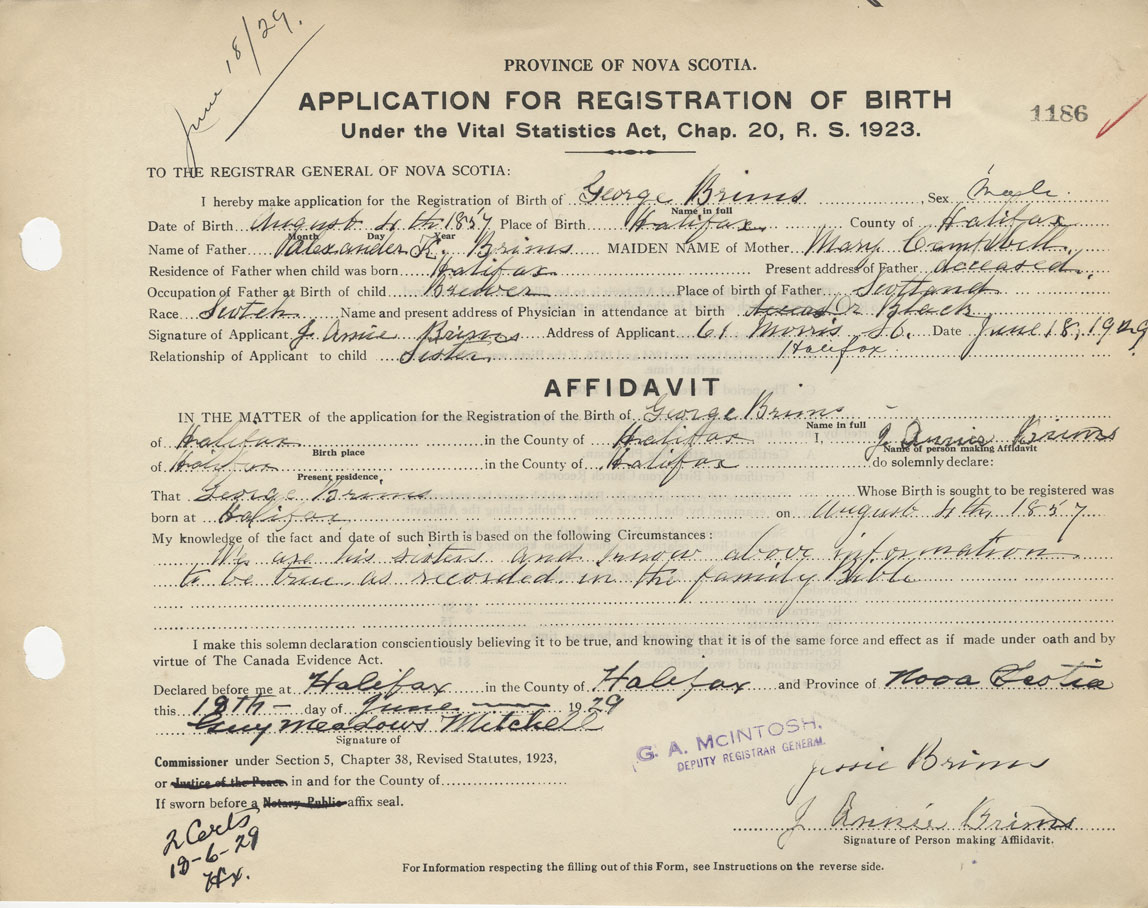 June 18/29.
PROVINCE OF NOVA SCOTIA.
APPLICATION FOR REGISTRATION OF BIRTH
1186
Under the Vital Statistics Act, Chap. 20, R. S. 1923.
TO THE REGISTRAR GENERAL OF NOVA SCOTIA:
I hereby make application for the Registration of Birth of George Brims Sex Male.
Name in full
Date of Birth August 4th 1857 Place of Birth Halifax County of Halifax
Month Day Year
Name of Father Alexander K. Brims MAIDEN NAME of Mother Mary Campbell.
Residence of Father when child was born Halifax Present address of Father deceased.
Occupation of Father at Birth of child Brewer Place of birth of Father Scotland
Race Scotch Name and present address of Physician in attendance at birth Dr Black
Signature of Applicant J. Annie Brims Address of Applicant 61 Morris St. Date June 18, 1929
Halifax
Relationship of Applicant to child Sister
AFFIDAVIT
IN THE MATTER of the application for the Registration of the Birth of George Brims
Name in full
of Halifax in the County of Halifax I, J Annie Brims
Birth place Name of person making Affidavit
of Halifax in the County of Halifax do solemnly declare:
Present residence,
That George Brims Whose Birth is sought to be registered was
born at Halifax on August 4th, 1857
My knowledge of the fact and date of such Birth is based on the following Circumstances:
We are his sisters and know above information
to be true as recorded in the family Bible
I make this solemn declaration conscientiously believing it to be true, and knowing that it is of the same force and effect as if made under oath and by
virtue of The Canada Evidence Act.
Declared before me at Halifax in the County of Halifax and Province of Nova Scotia
this 18th day of June 1929
Guy Meadows Mitchell
Signature of
G. A. McINTOSH.
DEPUTY REGISTRAR GENERAL.
Commissioner under Section 5, Chapter 38, Revised Statutes, 1923,
Jessie Brims
or Justice of the Peace in and for the County of
If sworn before a Notary Public affix seal.
J Annie Brims
Signature of Person making Affidavit.
2 Certs
18-6-29
Hx.
For Information respecting the filling out of this Form, see Instructions on the reverse side.